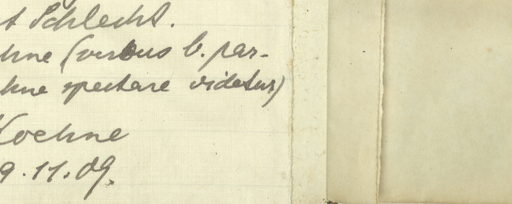 t Schlecht.
hne (versus b. par-
hne spectare videtur)
Koehne
9.11.09.